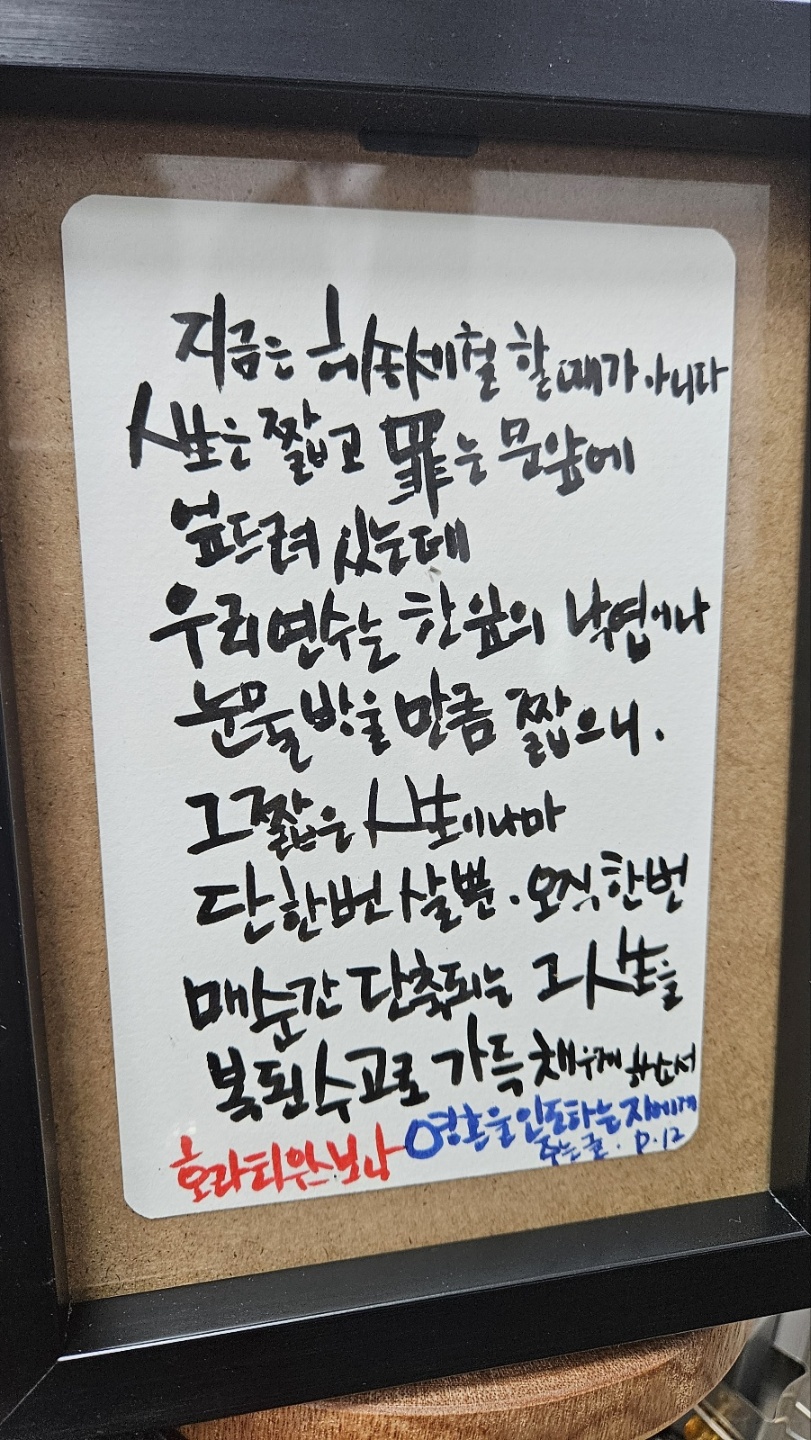 지금은 허송세월 할 때가 아니다
生은 짧고 罪는 문앞에
엎드려 있는데
우리 연수는 한 잎의 낙엽이나
눈물 방울 만큼 짧으니.
그 짧은 生이나마
단 한번 살뿐. 오직 한번
매순간 단축되는 그 生을
복된 수고로 가득 채우게 하소서
호라티우스 보나
영혼을 인도하는 자에게
주는 글. P.12